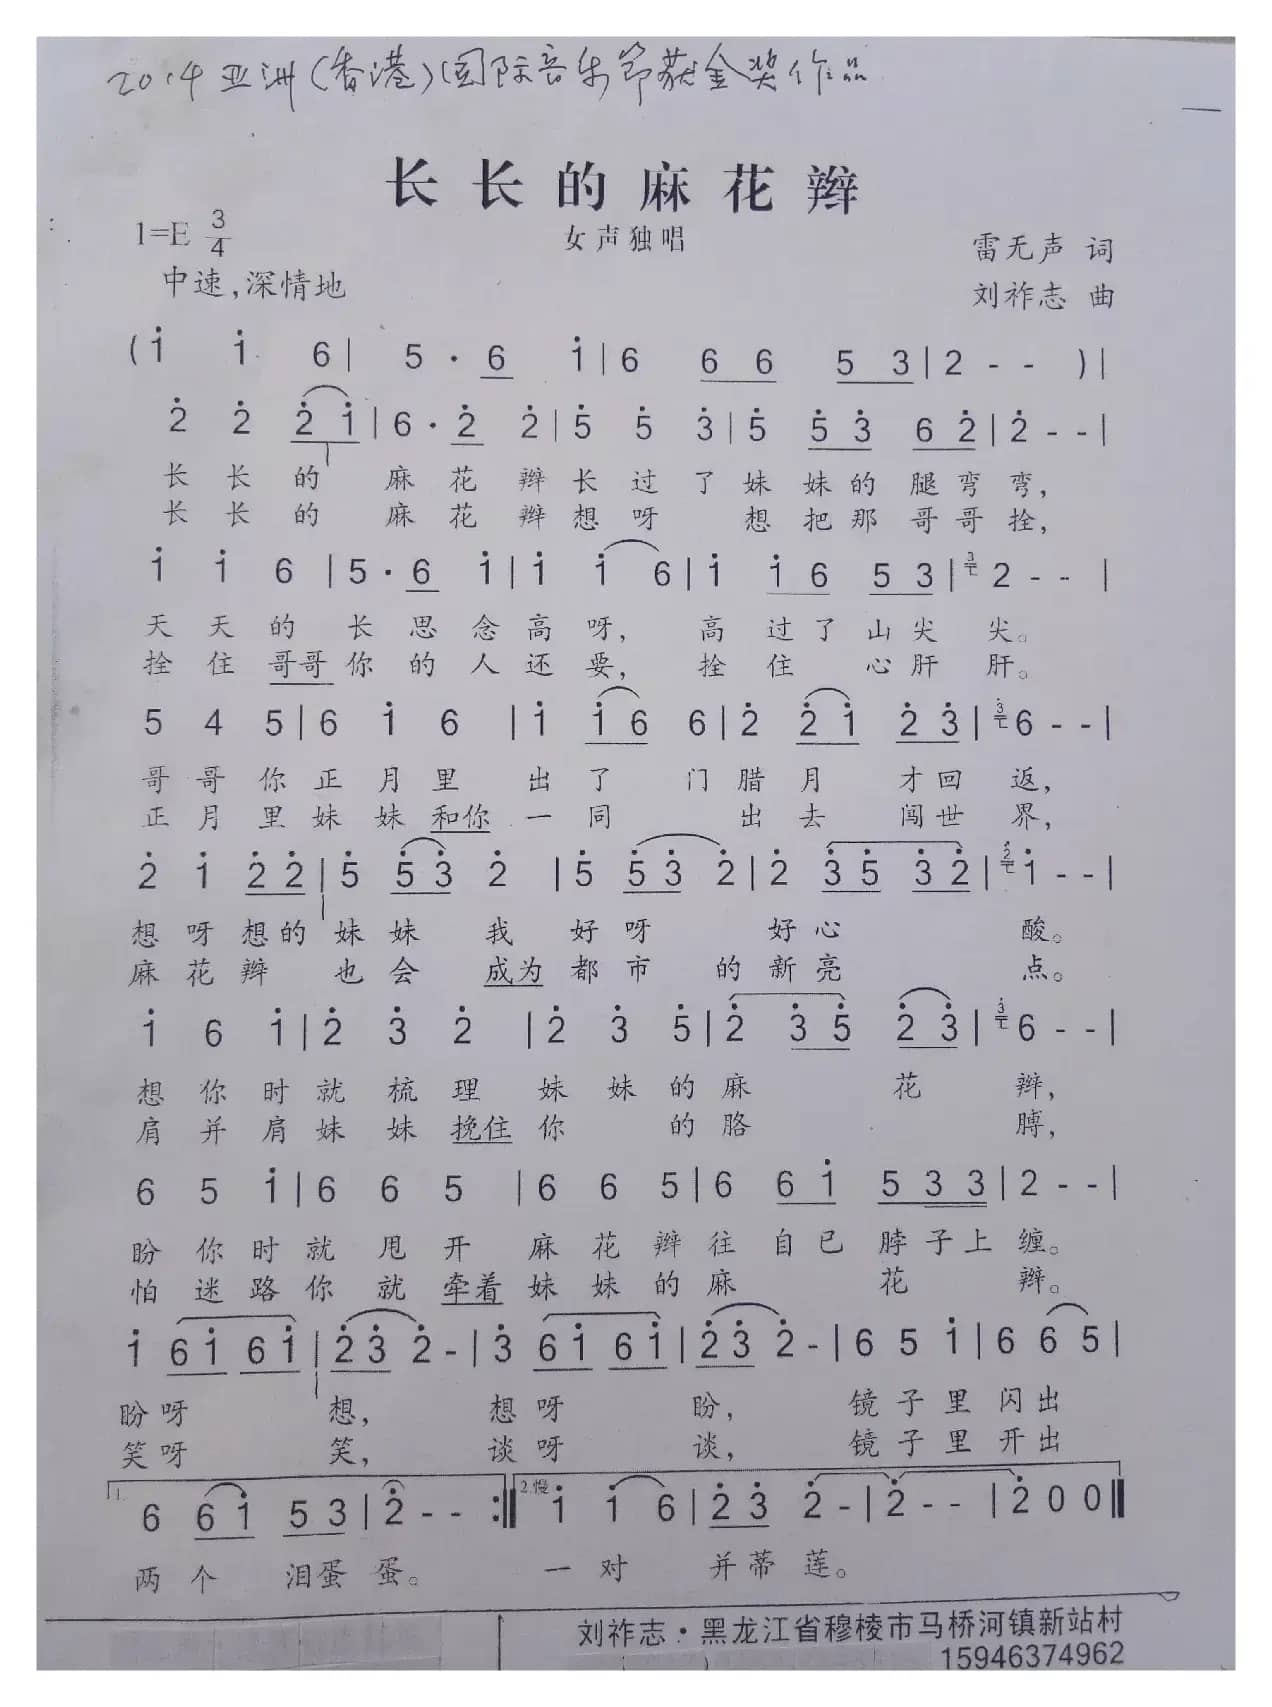 2014亚洲(香港)国际音乐节获金奖作品
长长的麻花辫
1=E 3/4
女声独唱
雷无声 词
中速,深情地
刘祚志 曲
(i̇ i̇ 6 | 5 · 6 i̇ | 6 6 6 5 3 | 2 - - ) |
2̇ 2̇ 2̇ i̇ | 6 · 2̇ 2̇ | 5̇ 5̇ 3̇ | 5̇ 5̇ 3̇ 6 2̇ | 2̇ - - |
长 长 的 麻 花 辫 长 过 了 妹 妹 的 腿 弯 弯,
长 长 的 麻 花 辫 想 呀 想 把 那 哥 哥 拴,
i̇ i̇ 6 | 5 · 6 i̇ | i̇ i̇ 6 | i̇ i̇ 6 5 3 | 3̇ 2 - - |
天 天 的 长 思 念 高 呀, 高 过 了 山 尖 尖。
拴 住 哥哥 你 的 人 还 要, 拴 住 心 肝 肝。
5 4 5 | 6 i̇ 6 | i̇ i̇ 6 6 | 2̇ 2̇ i̇ 2̇ 3̇ | 3̇ 6 - - |
哥 哥 你 正 月 里 出 了 门 腊 月 才 回 返,
正 月 里 妹 妹 和你 一 同 出 去 闯 世 界,
2̇ i̇ 2̇ 2̇ | 5̇ 5̇ 3̇ 2̇ | 5̇ 5̇ 3̇ 2̇ | 2̇ 3̇ 5̇ 3̇ 2̇ | 2̇ i̇ - - |
想 呀 想 的 妹 妹 我 好 呀 好 心 酸。
麻 花 辫 也 会 成为 都 市 的 新 亮 点。
i̇ 6 i̇ | 2̇ 3̇ 2̇ | 2̇ 3̇ 5̇ | 2̇ 3̇ 5̇ 2̇ 3̇ | 3̇ 6 - - |
想 你 时 就 梳 理 妹 妹 的 麻 花 辫,
肩 并 肩 妹 妹 挽住 你 的 胳 膊,
6 5 i̇ | 6 6 5 | 6 6 5 | 6 6 i̇ 5 3 3 | 2 - - |
盼 你 时 就 甩 开 麻 花 辫 往 自 已 脖 子 上 缠。
怕 迷 路 你 就 牵着 妹 妹 的 麻 花 辫。
i̇ 6 i̇ 6 i̇ | 2̇ 3̇ 2̇ - | 3̇ 6 i̇ 6 i̇ | 2̇ 3̇ 2̇ - | 6 5 i̇ | 6 6 5 |
盼 呀 想, 想 呀 盼, 镜 子 里 闪 出
笑 呀 笑, 谈 呀 谈, 镜 子 里 开 出
1. 6 6 i̇ 5 3 | 2̇ - - :‖ 2.慢 i̇ i̇ 6 | 2̇ 3̇ 2̇ - | 2̇ - - | 2̇ 0 0 ‖
两 个 泪 蛋 蛋。 一 对 并 蒂 莲。
刘祚志·黑龙江省穆棱市马桥河镇新站村
15946374962